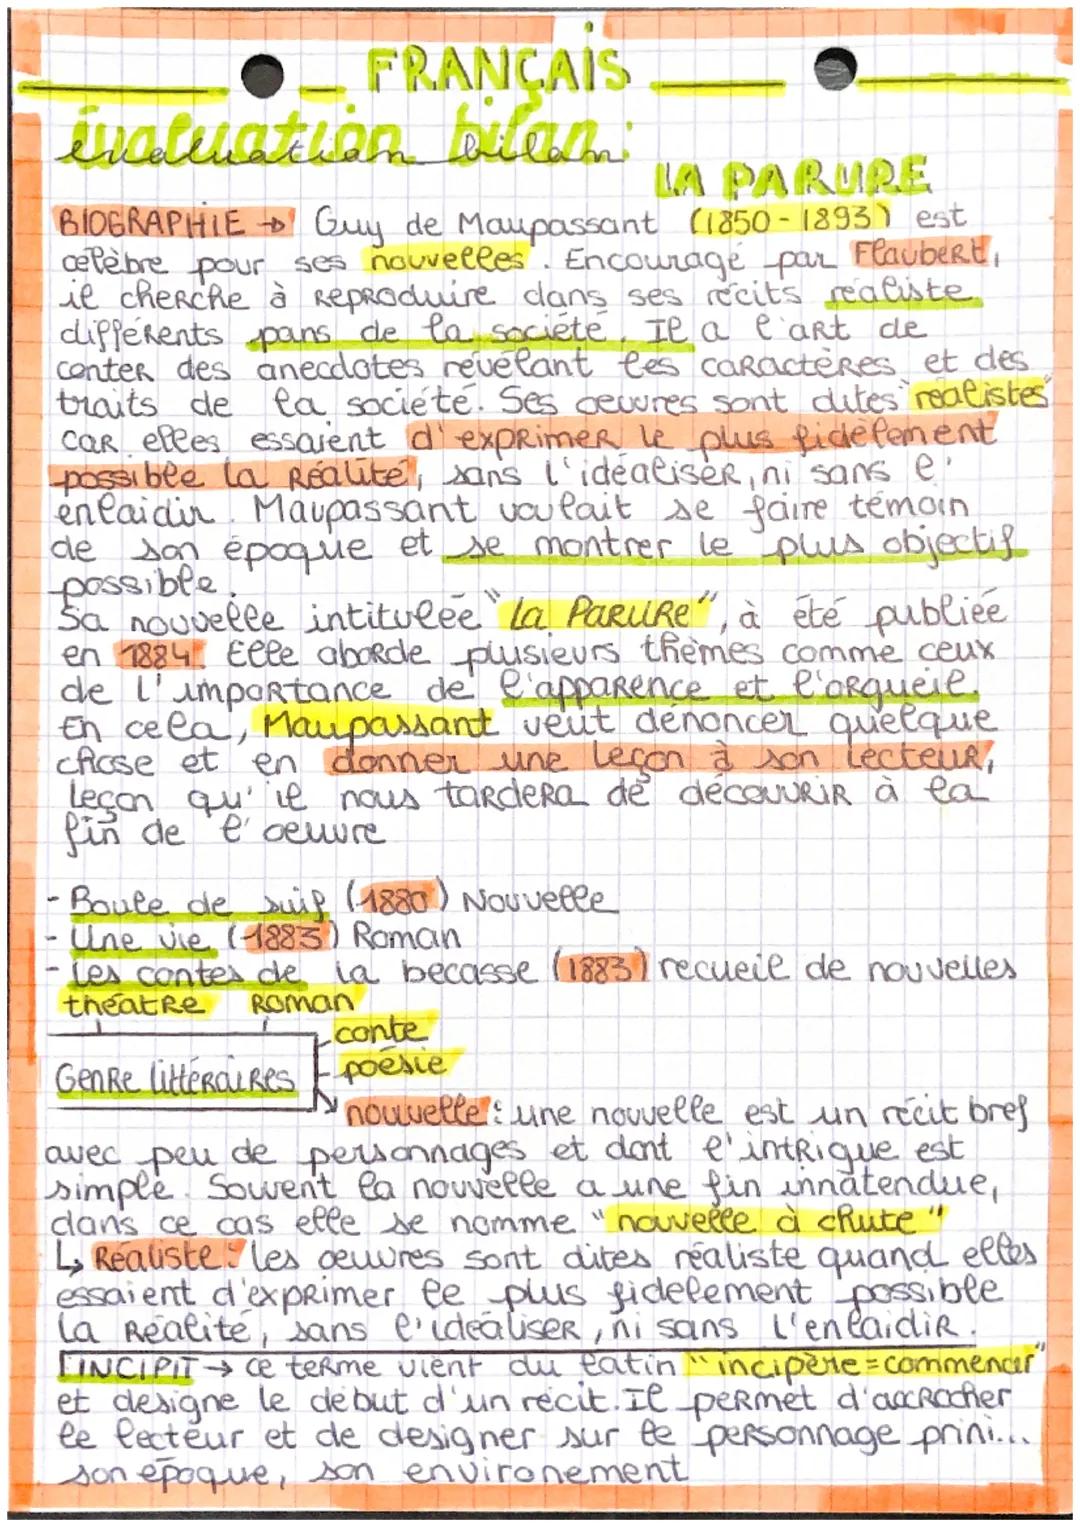 FRANÇAIS
évaluation bilan:
LA PARURE
BIOGRAPHIE → Guy de Maupassant (1850-1893) est
célèbre pour ses nouvelles. Encouragé par Flaubert,
il cherche à reproduire dans ses récits réaliste
différents pans de la société. Il a l'art de
conter des anecdotes révélant les caractères et des
traits de la société. Ses oeuvres sont dites "réalistes"
car elles essaient d'exprimer le plus fidèlement
possible la réalité, sans l'idéaliser, ni sans l'
enlaidir. Maupassant voulait se faire témoin
de son époque et se montrer le plus objectif
possible.
Sa nouvelle intitulée "La Parure", à été publiée
en 1884. Elle aborde plusieurs thèmes comme ceux
de l'importance de l'apparence et l'orgueil.
En cela, Maupassant veut dénoncer quelque
chose et en donner une leçon à son lecteur,
leçon qu'il nous tardera de découvrir à la
fin de l'oeuvre
- Boule de suif (1880) Nouvelle
- Une vie (1883) Roman
- Les contes de la becasse (1883) recueil de nouvelles
théatre Roman
conte
Genre littéraires poésie
nouvelle: une nouvelle est un récit bref
avec peu de personnages et dont l'intrigue est
simple. Souvent la nouvelle a une fin innatendue,
dans ce cas elle se nomme "nouvelle à chute"
↳ Réaliste: les oeuvres sont dites réaliste quand elles
essaient d'exprimer le plus fidelement possible
la réalité, sans l'idéaliser, ni sans l'enlaidir.
L'INCIPIT → ce terme vient du latin "incipère = commencer"
et designe le début d'un récit. Il permet d'accrocher
le lecteur et de designer sur le personnage prini...
son époque, son environement